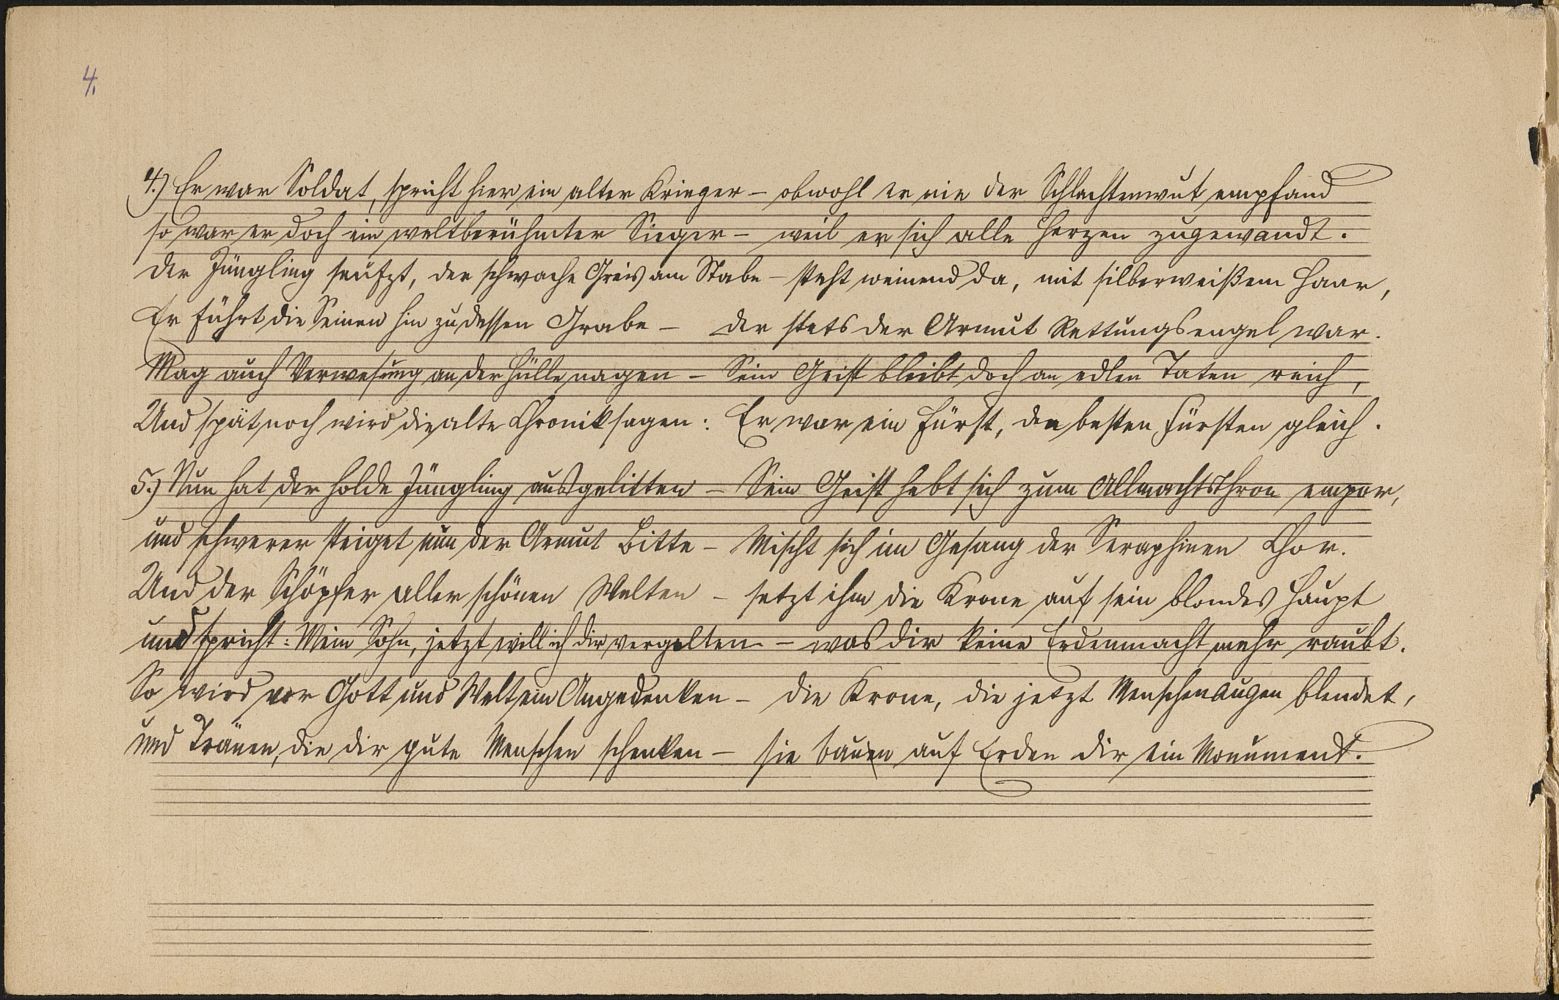 4.
4.) Er war Soldat, spricht hier ein alter Krieger – obwohl er nie der Schlachtenwut empfand
so war er doch ein weltberühmter Sieger – weil er sich alle Herzen zugewandt.
Der Jüngling seufzt, der schwache Greis am Stabe – steht weinend da, mit silberweißem Haar,
Er führt die Seinen hin zu dessen Grabe – der stets der Armut Rettungsengel war.
Mag auch Verwesung an der Hülle nagen – Sein Geist bleibt doch an edlen Taten reich,
Und spät noch wird die alte Chronik sagen: Er war ein Fürst, den besten Fürsten gleich.
5.) Nun hat der holde Jüngling ausgelitten – Sein Geist hebt sich zum Allmachtsthron empor,
und schwerer steiget nun der Armut Bitte – Mischt sich im Gesang der Seraphinen Chor.
Und der Schöpfer aller schönen Welten – setzt ihm die Krone auf sein blondes Haupt
und spricht: Mein Sohn, jetzt will ich dir vergelten – was dir keine Erdenmacht mehr raubt.
So wird vor Gott und Welt ein Angedenken – die Krone, die jetzt Menschenaugen blendet,
und Tränen, die dir gute Menschen schenken – sie bauen auf Erden dir ein Monument.